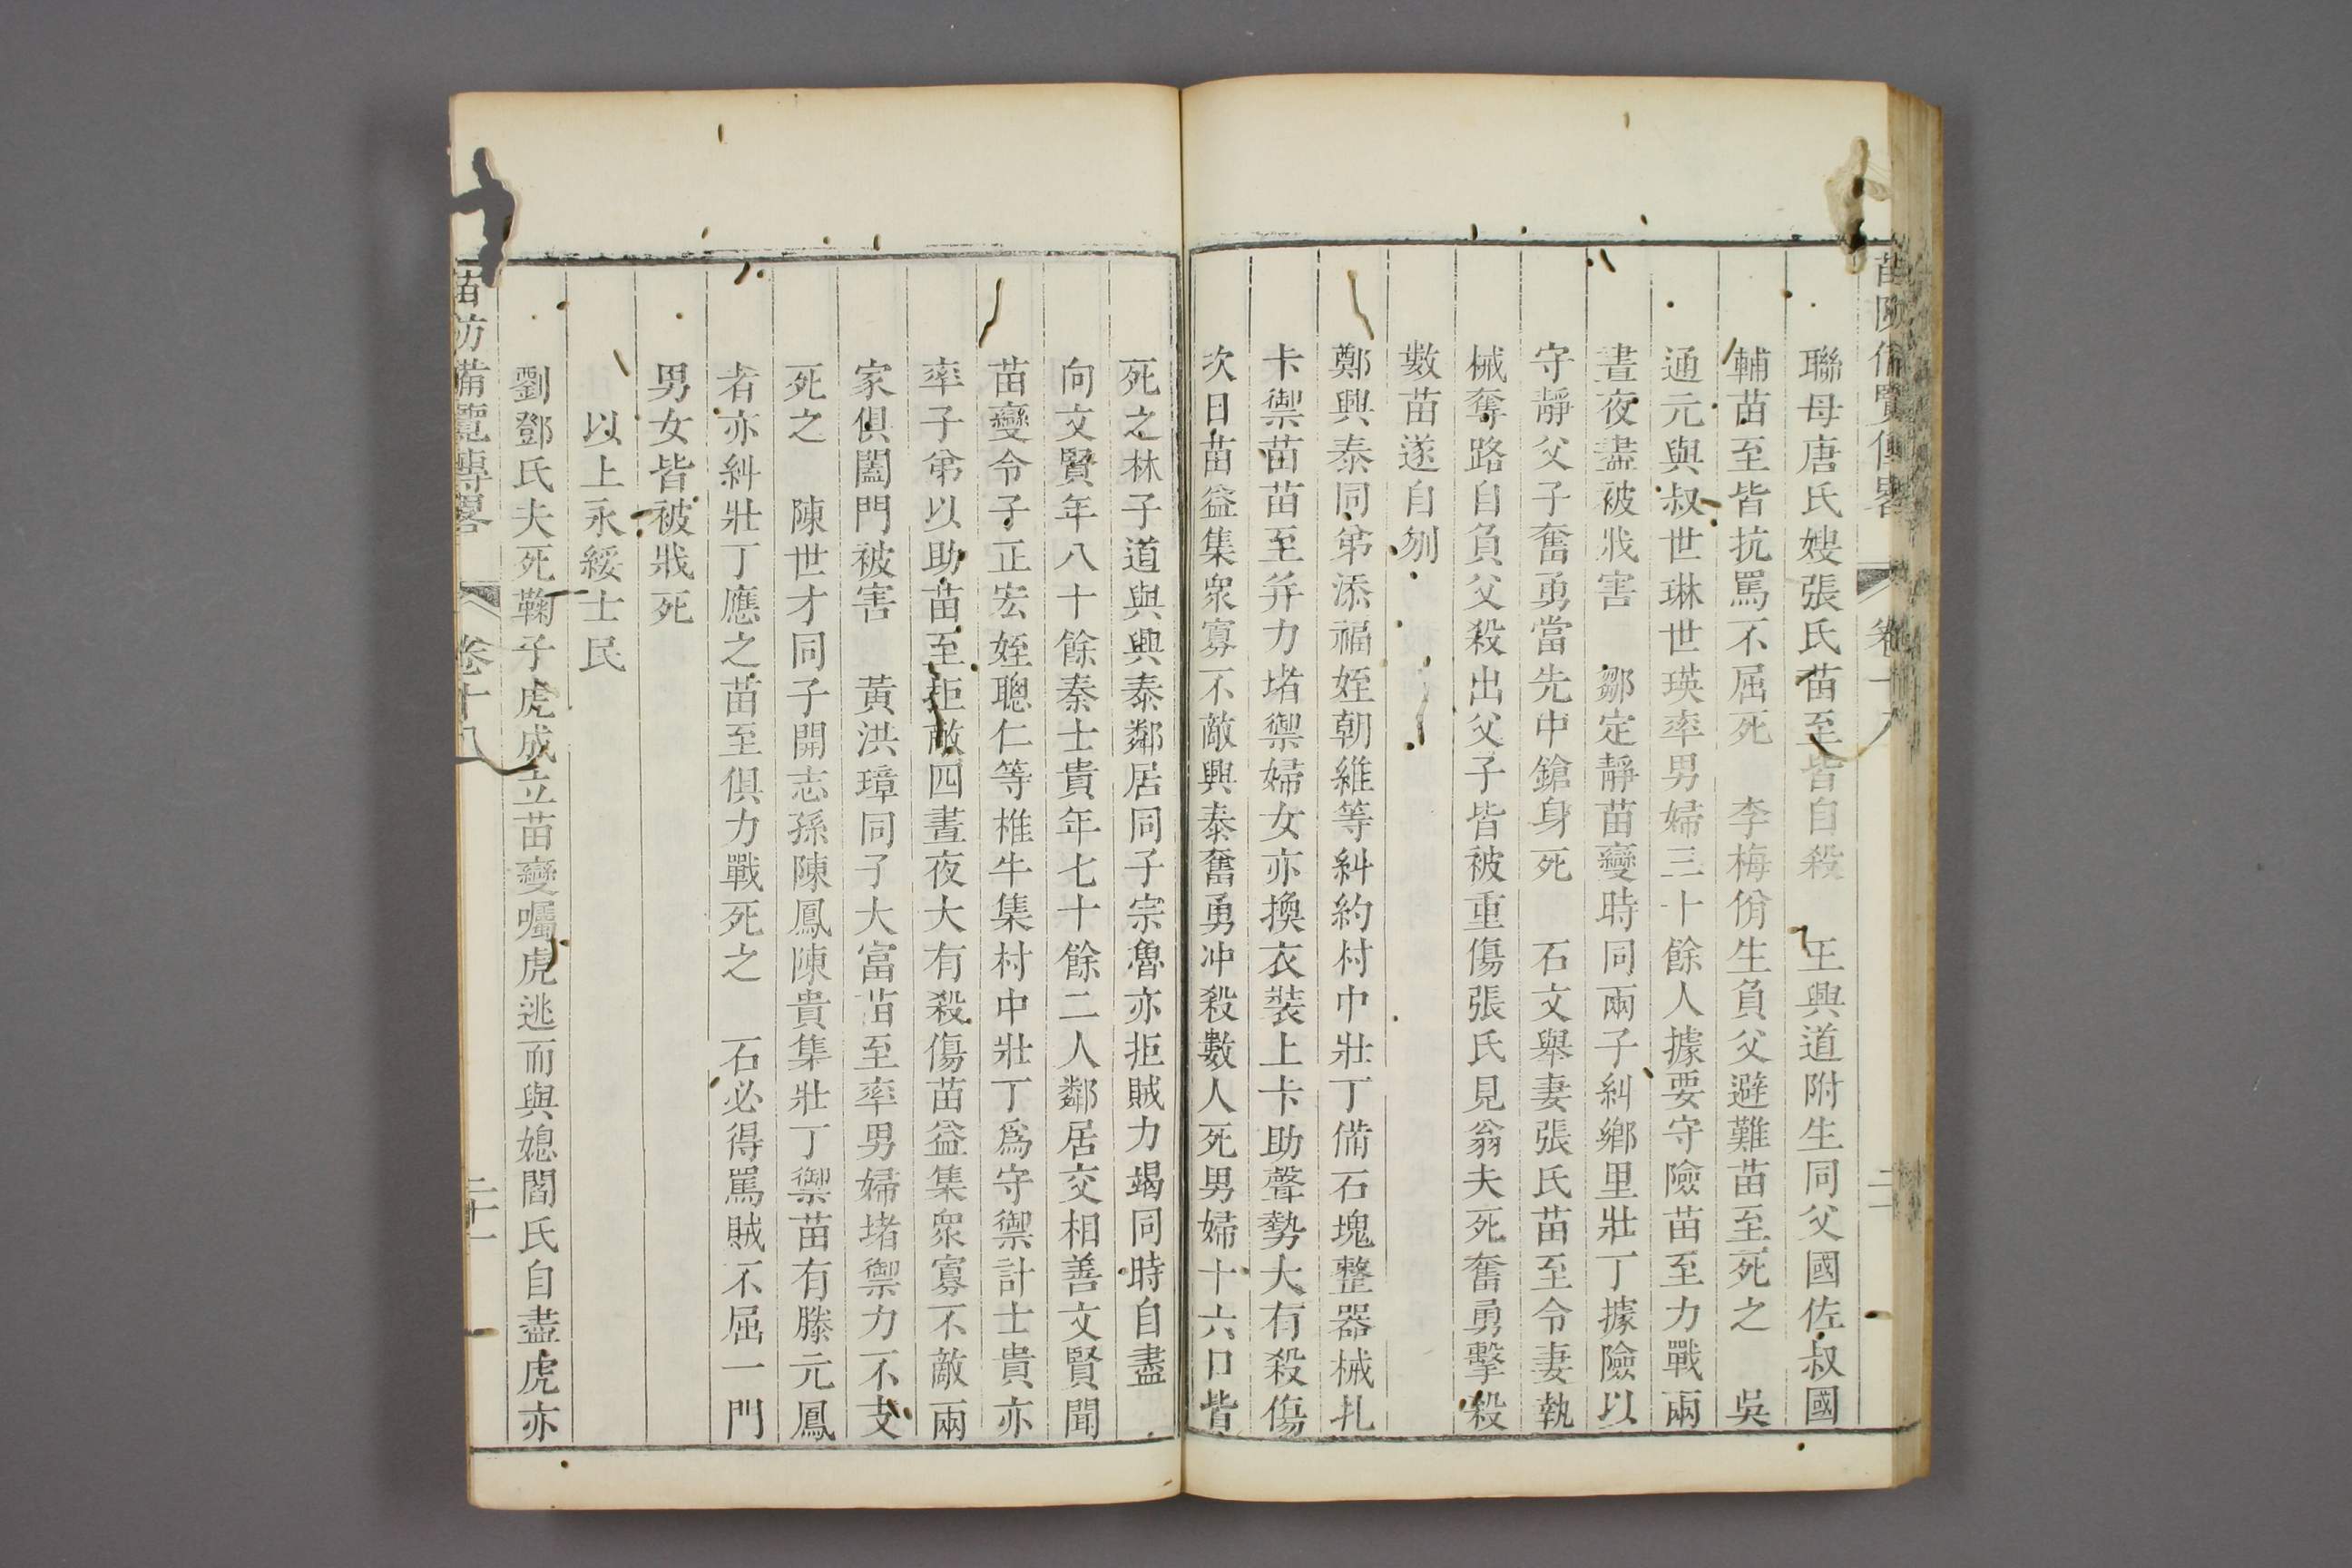 苗防備覽傳畧 卷十八
聯母唐氏嫂張氏苗至皆自殺　王興道附生同父國佐叔國
輔苗至皆抗罵不屈死　李梅份生負父避難苗至死之　吳
通元與叔世琳世瑛率男婦三十餘人據要守險苗至力戰兩
晝夜盡被戕害　鄒定靜苗變時同兩子糾鄉里壯丁據險以
守靜父子奮勇當先中鎗身死　石文舉妻張氏苗至令妻執
械奪路自負父殺出父子皆被重傷張氏見翁夫死奮勇擊殺
數苗遂自刎
鄭興泰同弟添福姪朝維等糾約村中壯丁備石塊整器械扎
卡禦苗苗至并力堵禦婦女亦換衣裝上卡助聲勢大有殺傷
次日苗益集衆寡不敵興泰奮勇冲殺數人死男婦十六口皆
死之林子道與興泰鄰居同子宗魯亦拒賊力竭同時自盡
向文賢年八十餘秦士貴年七十餘二人鄰居交相善文賢聞
苗變令子正宏姪聰仁等椎牛集村中壯丁爲守禦計士貴亦
率子弟以助苗至拒敵四晝夜大有殺傷苗益集衆寡不敵兩
家俱闔門被害　黃洪璋同子大富苗至率男婦堵禦力不支
死之　陳世才同子開志孫陳鳳陳貴集壯丁禦苗有滕元鳳
者亦糾壯丁應之苗至俱力戰死之　石必得罵賊不屈一門
男女皆被戕死
以上永綏士民
劉鄧氏夫死鞠子虎成立苗變囑虎逃而與媳閻氏自盡虎亦
苗防備覽傳畧 卷十八 二十一